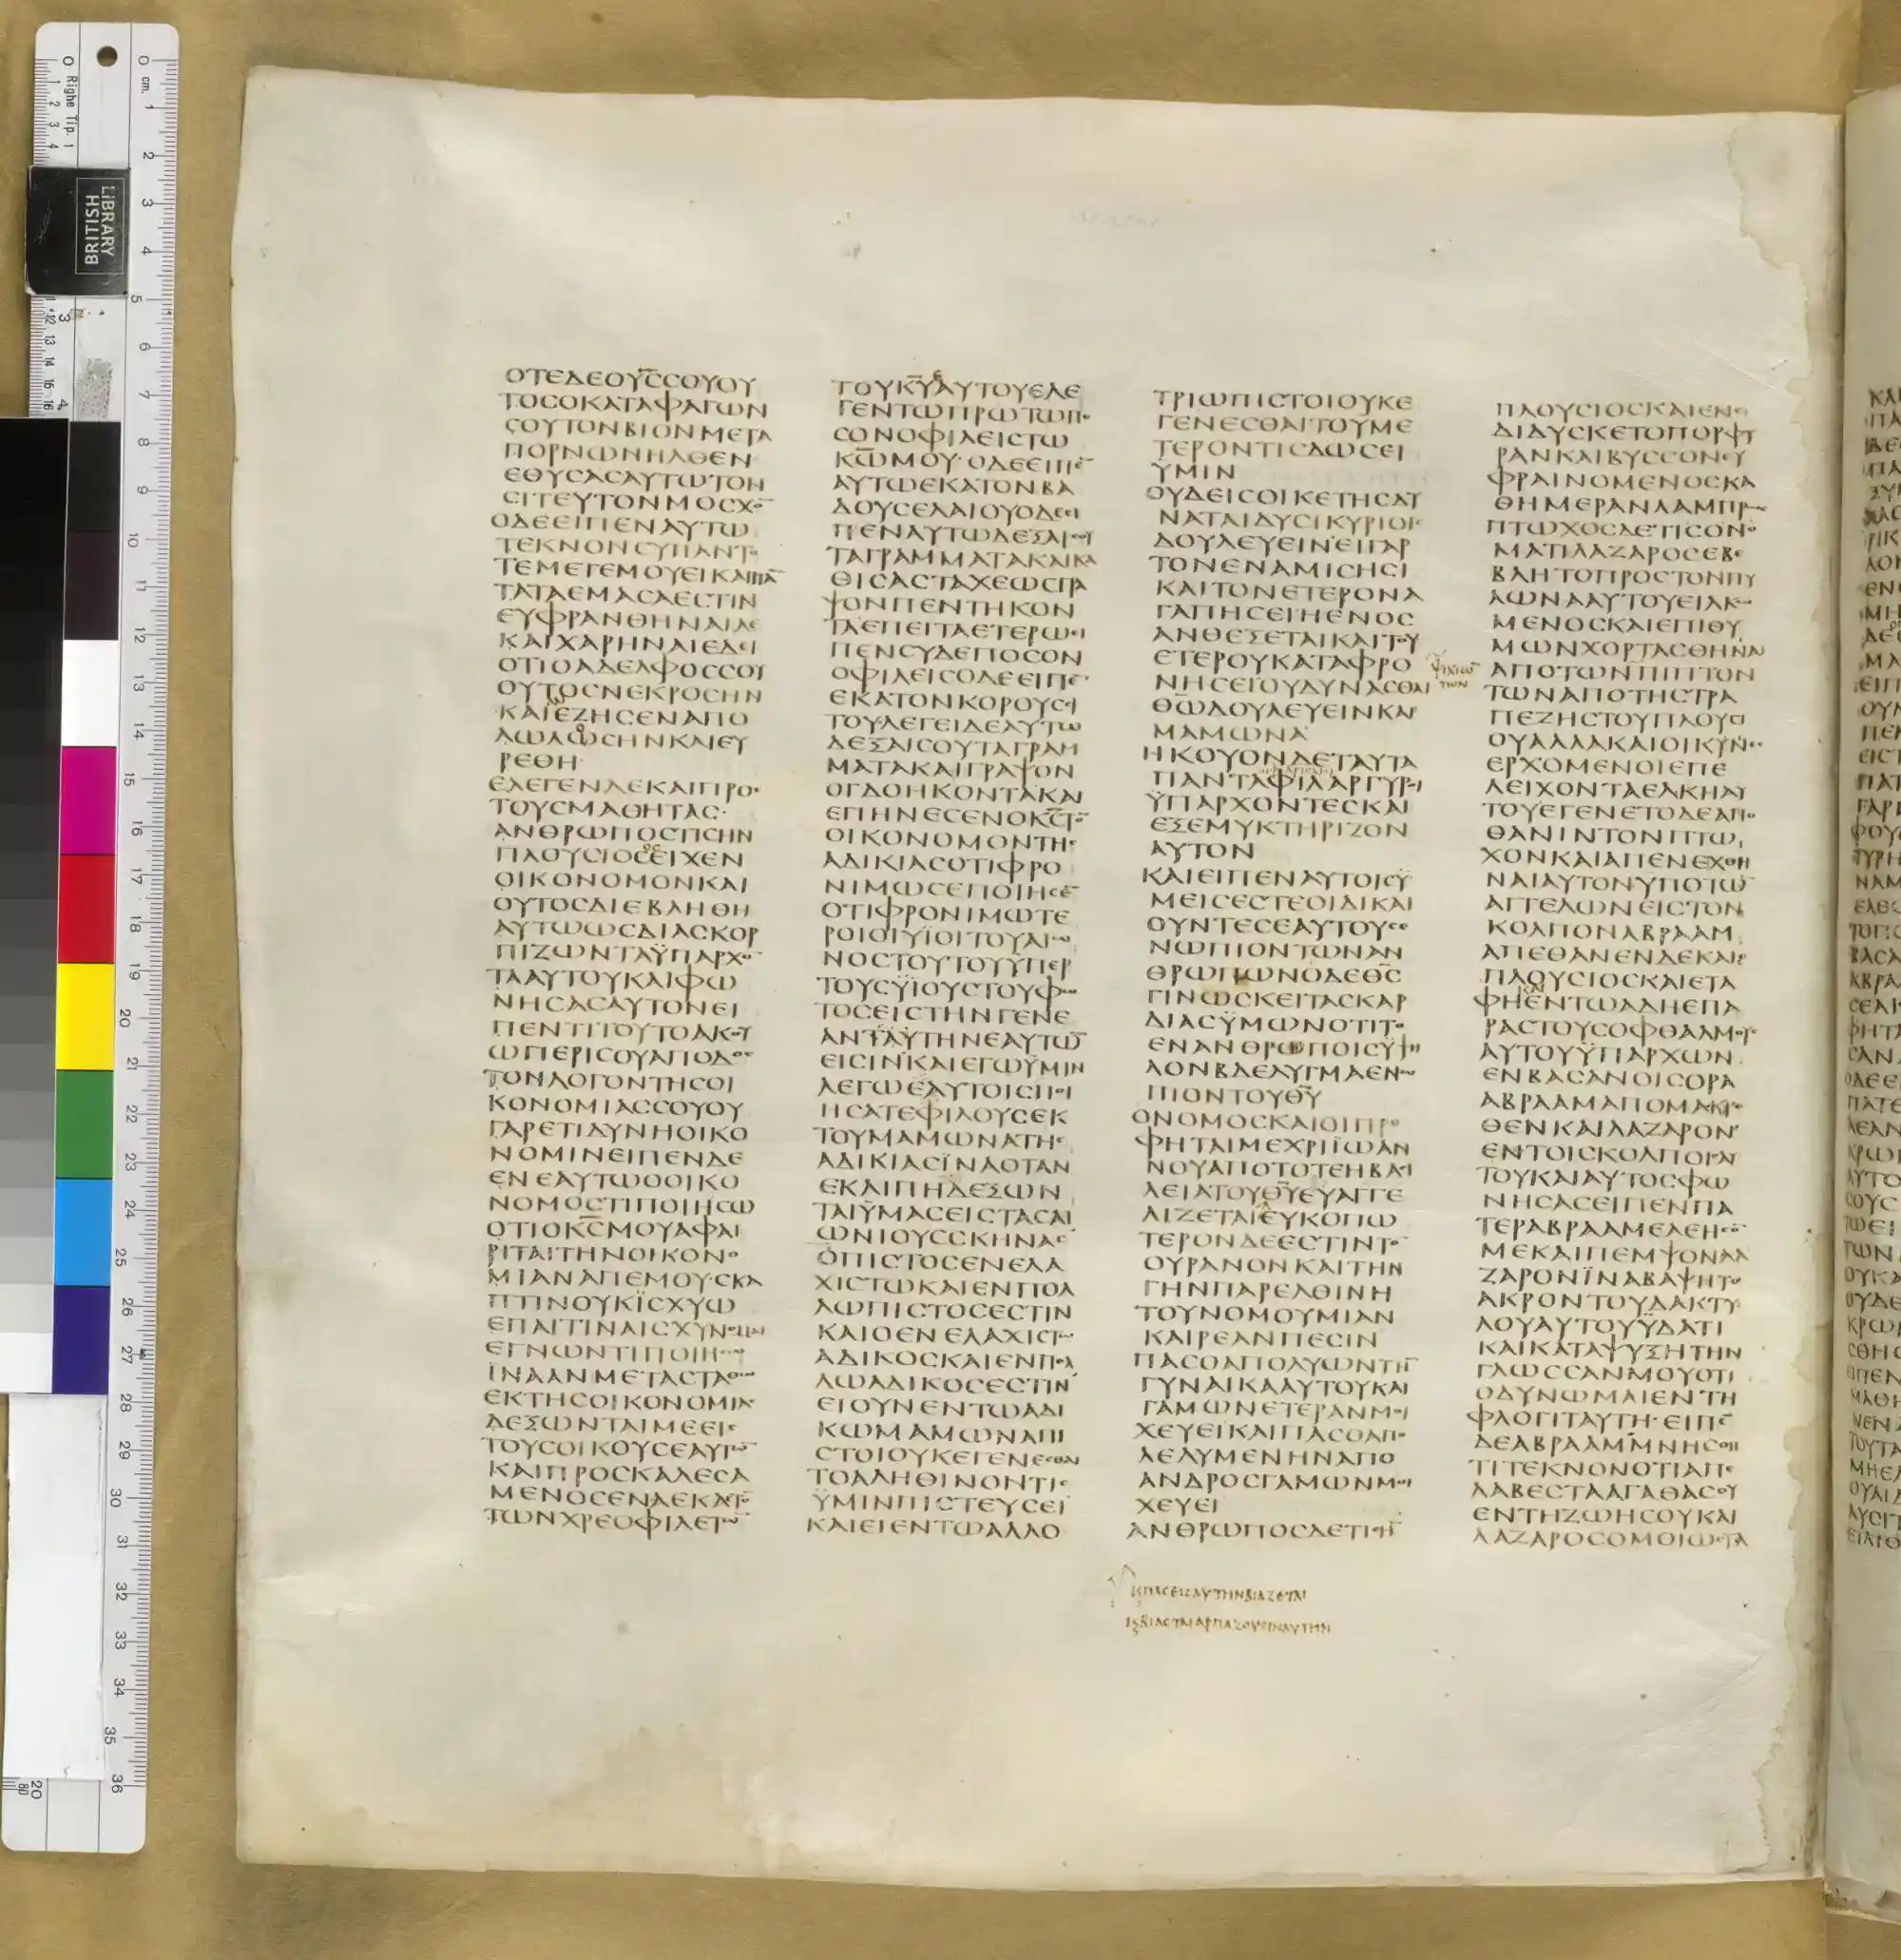 ΟΤΕΔΕΟΥC̅CΟΥΟΥ
ΤΟCΟΚΑΤΑΦΑΓΩΝ
CΟΥΤΟΝΒΙΟΝΜΕΤΑ
ΠΟΡΝΩΝΗΛΘΕΝ
ΕΘΥCΑCΑΥΤΩΤΟΝ
CΙΤΕΥΤΟΝΜΟCΧΟ̅
ΟΔΕΕΙΠΕΝΑΥΤΩ
ΤΕΚΝΟΝCΥΠΑΝΤΟ
ΤΕΜΕΤΕΜΟΥΕΙΚΑΙΠΑ̅
ΤΑΤΑΕΜΑCΑΕCΤΙΝ
ΕΥΦΡΑΝΘΗΝΑΙΔΕ
ΚΑΙΧΑΡΗΝΑΙΕΔΕΙ
ΟΤΙΟΑΔΕΛΦΟCCΟΥ
ΟΥΤΟCΝΕΚΡΟCΗΝ
ΚΑΙΕΖΗCΕΝΑΠΟ
ΛΩΛΩCΗΝΚΑΙΕΥ
ΡΕΘΗ
ΕΛΕΓΕΝΔΕΚΑΙΠΡΟC
ΤΟΥCΜΑΘΗΤΑC·
ΑΝΘΡΩΠΟCΤΙCΗΝ
ΠΛΟΥCΙΟCΕΙΧΕΝ
ΟΙΚΟΝΟΜΟΝΚΑΙ
ΟΥΤΟCΔΙΕΒΛΗΘΗ
ΑΥΤΩΩCΔΙΑCΚΟΡ
ΠΙΖΩΝΤΑΫΠΑΡΧΟ̅
ΤΑΑΥΤΟΥΚΑΙΦΩ
ΝΗCΑCΑΥΤΟΝΕΙ
ΠΕΝΤΙΤΟΥΤΟΑΚΟΥ
ΩΠΕΡΙCΟΥΑΠΟΔΟC
ΤΟΝΛΟΓΟΝΤΗCΟΙ
ΚΟΝΟΜΙΑCCΟΥΟΥ
ΓΑΡΕΤΙΔΥΝΗΟΙΚΟ
ΝΟΜΙΝΕΙΠΕΝΔΕ
ΕΝΕΑΥΤΩΟΟΙΚΟ
ΝΟΜΟCΤΙΠΟΙΗCΩ
ΟΤΙΟΚ̅C̅ΜΟΥΑΦΑΙ
ΡΙΤΑΙΤΗΝΟΙΚΟΝΟ
ΜΙΑΝΑΠΕΜΟΥ·CΚΑ
ΠΤΙΝΟΥΚΪCΧΥΩ
ΕΠΑΙΤΙΝΑΙCΧΥΝΟΜΑΙ
ΕΓΝΩΝΤΙΠΟΙΗCΩ
ΪΝΑΑΝΜΕΤΑCΤΑΘΩ
ΕΚΤΗCΟΙΚΟΝΟΜΙΑC
ΔΕΞΩΝΤΑΙΜΕΕΙC
ΤΟΥCΟΙΚΟΥCΕΑΥΤΩ̅
ΚΑΙΠΡΟCΚΑΛΕCΑ
ΜΕΝΟCΕΝΑΕΚΑCΤΟ̅
ΤΩΝΧΡΕΟΦΙΛΕΤΩ̅
ΤΟΥΚ̅Υ̅ΑΥΤΟΥΕΛΕ
ΓΕΝΤΩΠΡΩΤΩΠΟ
CΟΝΟΦΙΛΕΙCΤΩ
Κ̅Ω̅ΜΟΥ·ΟΔΕΕΙΠΕ̅
ΑΥΤΩΕΚΑΤΟΝΒΑ
ΔΟΥCΕΛΑΙΟΥΟΔΕΕΙ
ΠΕΝΑΥΤΩΔΕΞΑΙCΟΥ
ΤΑΓΡΑΜΜΑΤΑΚΑΙΚΑ
ΘΙCΑCΤΑΧΕΩCΓΡΑ
ΨΟΝΠΕΝΤΗΚΟΝ
ΤΑΕΠΕΙΤΑΕΤΕΡΩΕΙ
ΠΕΝCΥΔΕΠΟCΟΝ
ΟΦΙΛΕΙCΟΔΕΕΙΠΕ
ΕΚΑΤΟΝΚΟΡΟΥCCΙ
ΤΟΥΛΕΓΕΙΔΕΑΥΤΩ
ΔΕΞΑΙCΟΥΤΑΓΡΑΜ
ΜΑΤΑΚΑΙΓΡΑΨΟΝ
ΟΓΔΟΗΚΟΝΤΑΚΑΙ
ΕΠΗΝΕCΕΝΟΚ̅C̅ΤΟ̅
ΟΙΚΟΝΟΜΟΝΤΗC
ΑΔΙΚΙΑCΟΤΙΦΡΟ
ΝΙΜΩCΕΠΟΙΗCΕ̅
ΟΤΙΦΡΟΝΙΜΩΤΕ
ΡΟΙΟΙΥΪΟΙΤΟΥΑΙΩ
ΝΟCΤΟΥΤΟΥΫΠΕΡ
ΤΟΥCΫΪΟΥCΤΟΥΦΩ
ΤΟCΕΙCΤΗΝΓΕΝΕ
ΑΝΤΑΥΤΗΝΕΑΥΤΩ̅
ΕΙCΙΝΚΑΙΕΓΩΫΜΙΝ
ΛΕΓΩΕΑΥΤΟΙCΠΟΙ
ΗCΑΤΕΦΙΛΟΥCΕΚ
ΤΟΥΜΑΜΩΝΑΤΗC
ΑΔΙΚΙΑCΪΝΑΟΤΑΝ
ΕΚΛΙΠΗΔΕΞΩΝ
ΤΑΙΫΜΑCΕΙCΤΑCΑΙ
ΩΝΙΟΥCCΚΗΝΑC
ΟΠΙCΤΟCΕΝΕΛΑ
ΧΙCΤΩΚΑΙΕΝΠΟΛ
ΛΩΠΙCΤΟCΕCΤΙΝ
ΚΑΙΟΕΝΕΛΑΧΙCΤΩ
ΑΔΙΚΟCΚΑΙΕΝΠΟΛ
ΛΩΑΔΙΚΟCΕCΤΙΝ
ΕΙΟΥΝΕΝΤΩΑΔΙ
ΚΩΜΑΜΩΝΑΠΙ
CΤΟΙΟΥΚΕΓΕΝΕCΘΑΙ
ΤΟΑΛΗΘΙΝΟΝΤΙC
ΫΜΙΝΠΙCΤΕΥCΕΙ
ΚΑΙΕΙΕΝΤΩΑΛΛΟ
ΤΡΙΩΠΙCΤΟΙΟΥΚΕ
ΓΕΝΕCΘΑΙΤΟΥΜΕ
ΤΕΡΟΝΤΙCΔΩCΕΙ
ΫΜΙΝ
ΟΥΔΕΙCΟΙΚΕΤΗCΔΥ
ΝΑΤΑΙΔΥCΙΚΥΡΙΟΙC
ΔΟΥΛΕΥΕΙΝΕΙΓΑΡ
ΤΟΝΕΝΑΜΙCΗCΙ
ΚΑΙΤΟΝΕΤΕΡΟΝΑ
ΓΑΠΗCΕΙΗΕΝΟC
ΑΝΘΕΞΕΤΑΙΚΑΙΤΟΥ
ΕΤΕΡΟΥΚΑΤΑΦΡΟ
ΝΗCΕΙΟΥΔΥΝΑCΘΑΙ
Θ̅Ω̅ΔΟΥΛΕΥΕΙΝΚΑΙ
ΜΑΜΩΝΑ
ΗΚΟΥΟΝΔΕΤΑΥΤΑ
ΠΑΝΤΑΦΙΛΑΡΓΥΡΟΙ
ΫΠΑΡΧΟΝΤΕCΚΑΙ
ΕΞΕΜΥΚΤΗΡΙΖΟΝ
ΑΥΤΟΝ
ΚΑΙΕΙΠΕΝΑΥΤΟΙCΫ
ΜΕΙCΕCΤΕΟΙΔΙΚΑΙ
ΟΥΝΤΕCΕΑΥΤΟΥCΕ
ΝΩΠΙΟΝΤΩΝΑΝ
ΘΡΩΠΩΝΟΔΕΘ̅C̅
ΓΙΝΩCΚΕΙΤΑCΚΑΡ
ΔΙΑCΫΜΩΝΟΤΙΤΟ
ΕΝΑΝΘΡΩΠΟΙCΫΨΗ
ΛΟΝΒΔΕΛΥΓΜΑΕΝΩ
ΠΙΟΝΤΟΥΘ̅Υ̅
ΟΝΟΜΟCΚΑΙΟΙΠΡΟ
ΦΗΤΑΙΜΕΧΡΙΪΩΑΝ
ΝΟΥΑΠΟΤΟΤΕΗΒΑCΙ
ΛΕΙΑΤΟΥΘ̅Υ̅ΕΥΑΓΓΕ
ΛΙΖΕΤΑΙΕΥΚΟΠΩ
ΤΕΡΟΝΔΕΕCΤΙΝΤΟ̅
ΟΥΡΑΝΟΝΚΑΙΤΗΝ
ΓΗΝΠΑΡΕΛΘΙΝΗ
ΤΟΥΝΟΜΟΥΜΙΑΝ
ΚΑΙΡΕΑΝΠΕCΙΝ
ΠΑCΟΑΠΟΛΥΩΝΤΗ̅
ΓΥΝΑΙΚΑΑΥΤΟΥΚΑΙ
ΓΑΜΩΝΕΤΕΡΑΝΜΟΙ
ΧΕΥΕΙΚΑΙΠΑCΟΑΠΟ
ΛΕΛΥΜΕΝΗΝΑΠΟ
ΑΝΔΡΟCΓΑΜΩΝΜΟΙ
ΧΕΥΕΙ
ΑΝΘΡΩΠΟCΔΕΤΙCΗ̅
ΠΑCΕΙCΑΥΤΗΝΒΙΑΖΕΤΑΙ
ΒΙΑCΤΑΙΑΡΠΑΖΟΥCΙΝΑΥΤΗΝ
ΠΛΟΥCΙΟCΚΑΙΕΝΕ
ΔΙΔΥCΚΕΤΟΠΟΡΦΥ
ΡΑΝΚΑΙΒΥCCΟΝΕΥ
ΦΡΑΙΝΟΜΕΝΟCΚΑ
ΘΗΜΕΡΑΝΛΑΜΠΡΩC
ΠΤΩΧΟCΔΕΤΙCΟΝΟ
ΜΑΤΙΛΑΖΑΡΟCΕΒΕ
ΒΛΗΤΟΠΡΟCΤΟΝΠΥ
ΛΩΝΑΑΥΤΟΥΕΙΛΚΩ
ΜΕΝΟCΚΑΙΕΠΙΘΥ
ΜΩΝΧΟΡΤΑCΘΗΝΑΙ
ΑΠΟΤΩΝΠΙΠΤΟΝ
ΤΩΝΑΠΟΤΗCΤΡΑ
ΠΕΖΗCΤΟΥΠΛΟΥCΙ
ΟΥΑΛΛΑΚΑΙΟΙΚΥΝΕC
ΕΡΧΟΜΕΝΟΙΕΠΕ
ΛΕΙΧΟΝΤΑΕΛΚΗΑΥ
ΤΟΥΕΓΕΝΕΤΟΔΕΑΠΟ
ΘΑΝΙΝΤΟΝΠΤΩ
ΧΟΝΚΑΙΑΠΕΝΕΧΘΗ
ΝΑΙΑΥΤΟΝΥΠΟΤΩ̅
ΑΓΓΕΛΩΝΕΙCΤΟΝ
ΚΟΛΠΟΝΑΒΡΑΑΜ
ΑΠΕΘΑΝΕΝΔΕΚΑΙΟ
ΠΛΟΥCΙΟCΚΑΙΕΤΑ
ΦΗΕΝΤΩΑΔΗΕΠΑ
ΡΑCΤΟΥCΟΦΘΑΛΜΟΥC
ΑΥΤΟΥΫΠΑΡΧΩΝ
ΕΝΒΑCΑΝΟΙCΟΡΑ
ΑΒΡΑΑΜΑΠΟΜΑΚΡΟ
ΘΕΝΚΑΙΛΑΖΑΡΟΝ
ΕΝΤΟΙCΚΟΛΠΟΙCΑΥ
ΤΟΥΚΑΙΑΥΤΟCΦΩ
ΝΗCΑCΕΙΠΕΝΠΑ
ΤΕΡΑΒΡΑΑΜΕΛΕΗCΟ̅
ΜΕΚΑΙΠΕΜΨΟΝΛΑ
ΖΑΡΟΝΪΝΑΒΑΨΗΤΟ
ΑΚΡΟΝΤΟΥΔΑΚΤΥ
ΛΟΥΑΥΤΟΥΫΔΑΤΙ
ΚΑΙΚΑΤΑΨΥΞΗΤΗΝ
ΓΛΩCCΑΝΜΟΥΟΤΙ
ΟΔΥΝΩΜΑΙΕΝΤΗ
ΦΛΟΓΙΤΑΥΤΗ·ΕΙΠΕ̅
ΔΕΑΒΡΑΑΜΜΝΗCΘΗ
ΤΙΤΕΚΝΟΝΟΤΙΑΠΕ
ΛΑΒΕCΤΑΑΓΑΘΑCΟΥ
ΕΝΤΗΖΩΗCΟΥΚΑΙ
ΛΑΖΑΡΟCΟΜΟΙΩCΤΑ